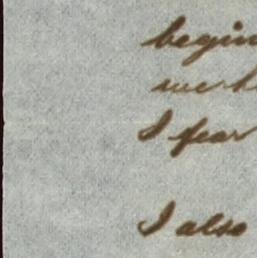 begin
we h
I fear
I also